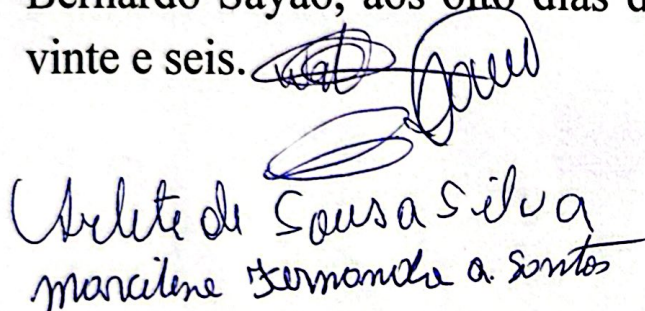 Bernardo Sayão, aos oito dias d
vinte e seis.
Arlete de Sousa Silva
marcilene Fernanda a. Santos